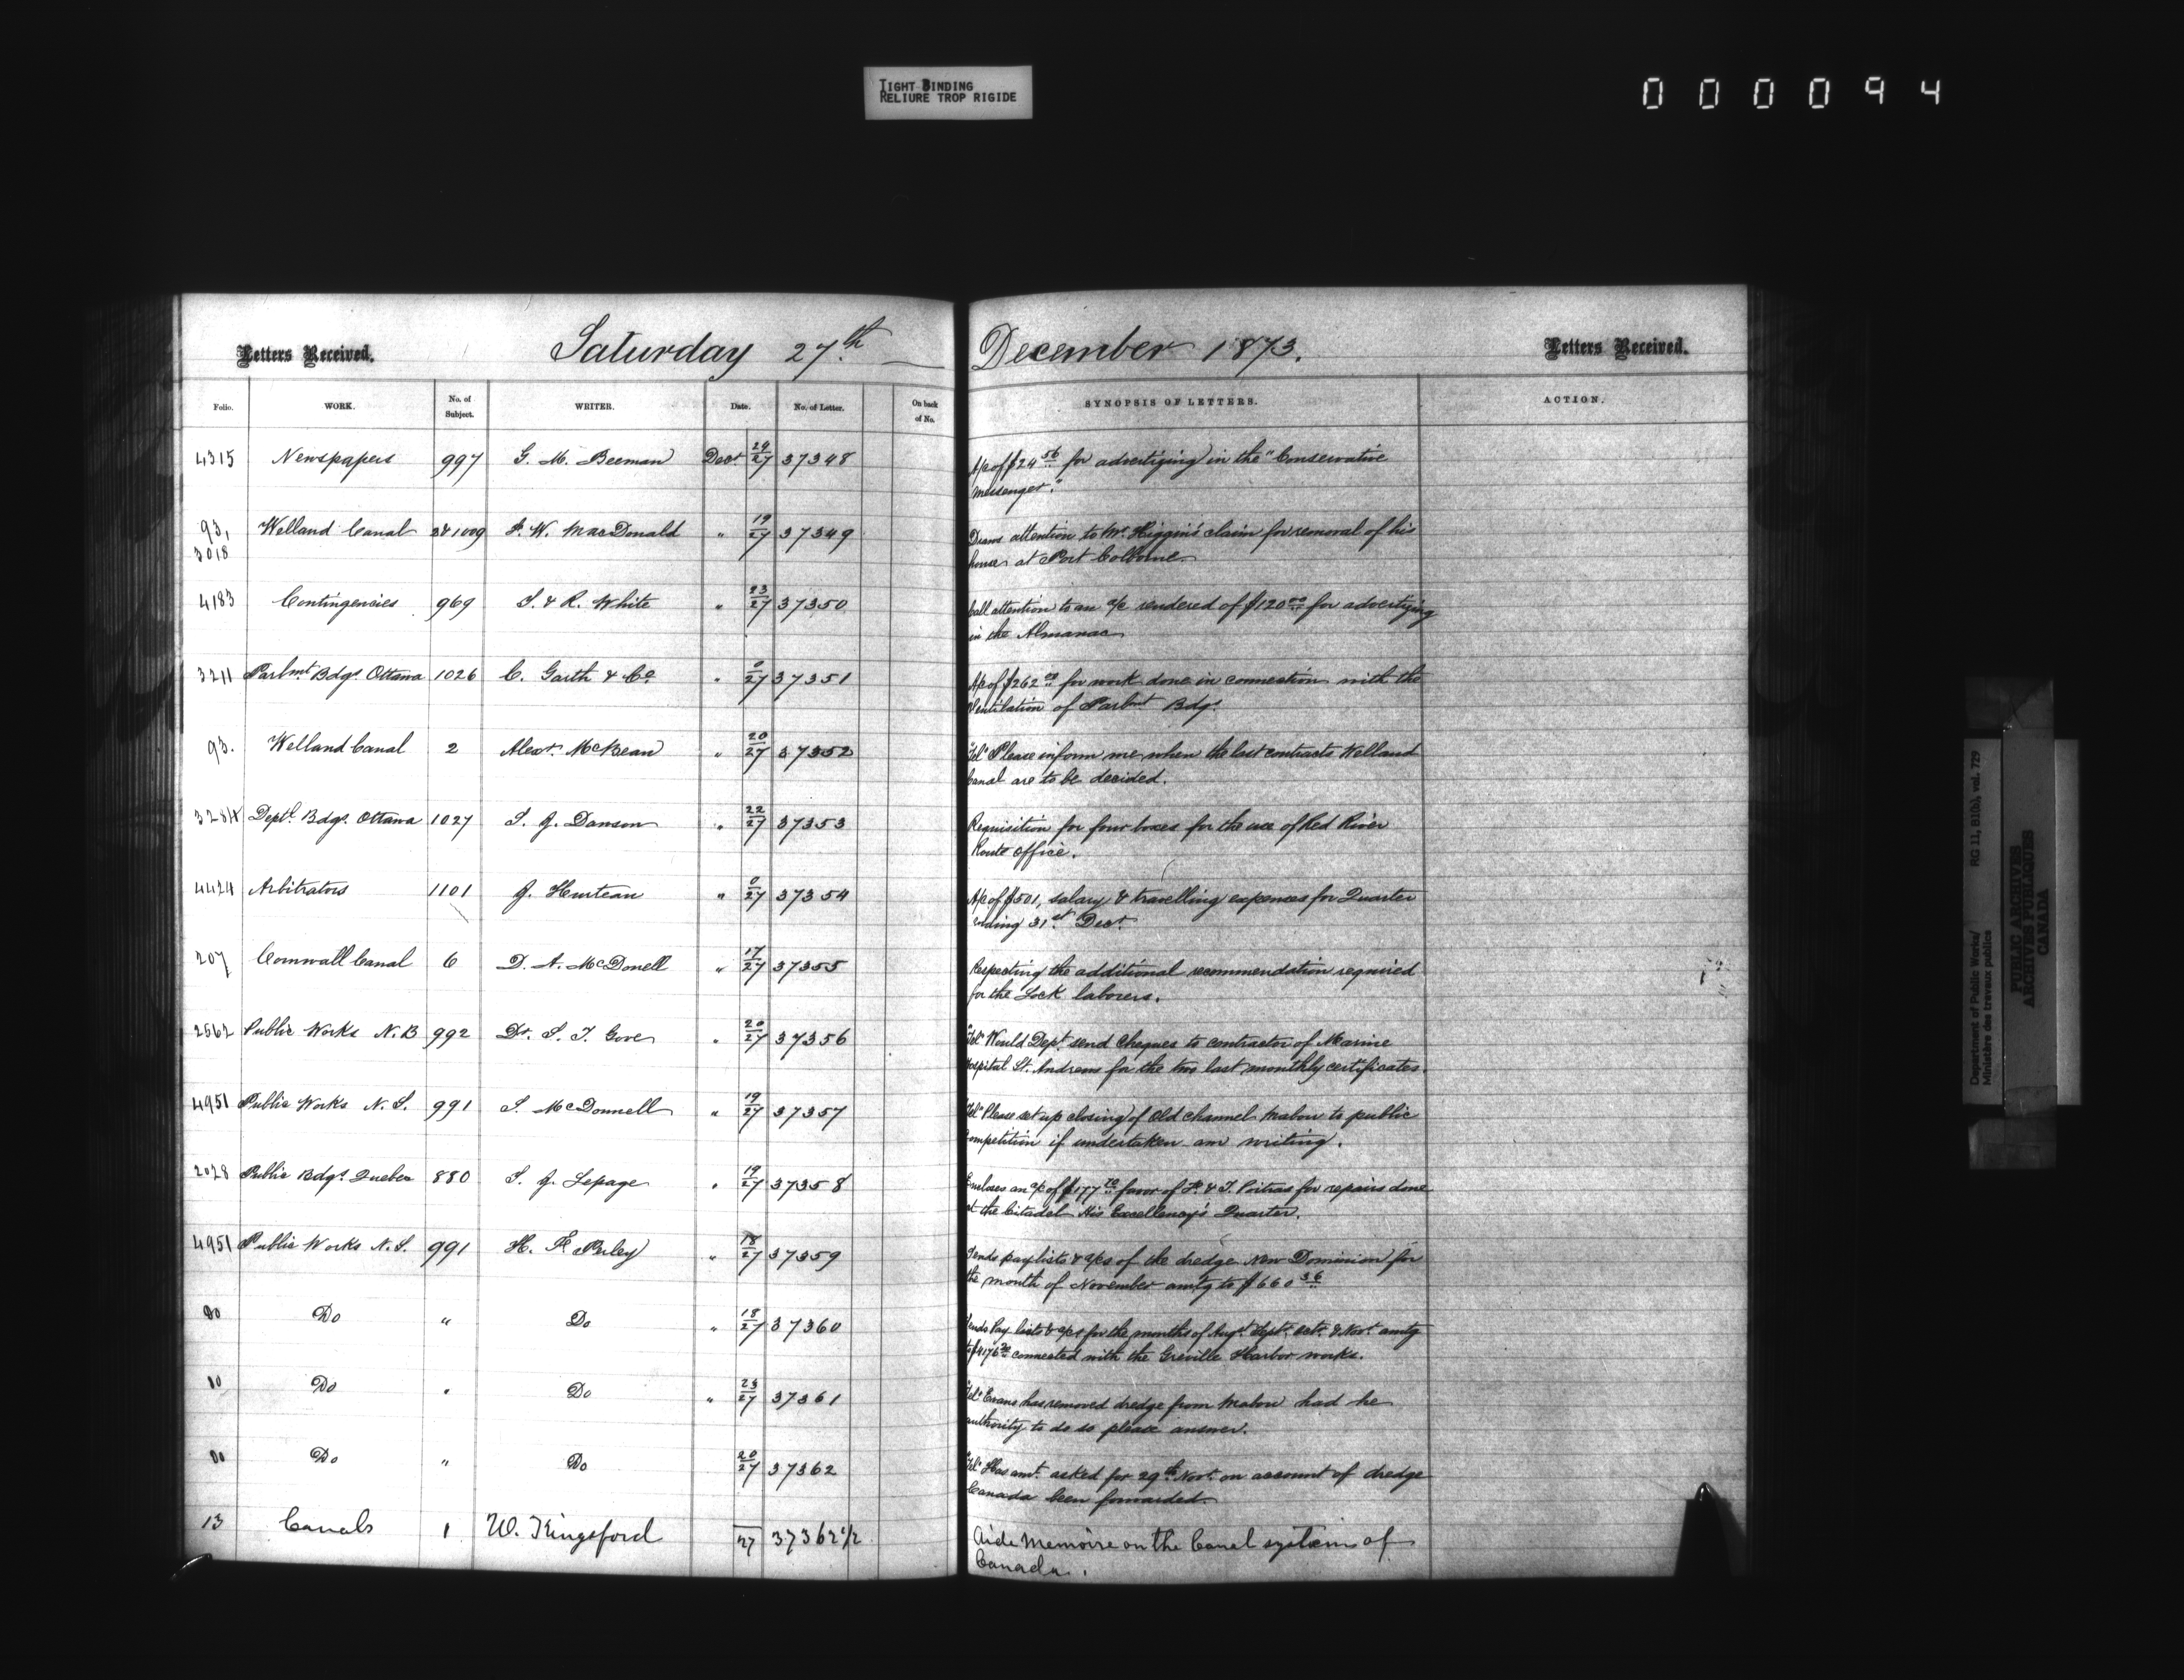 TIGHT BINDING
RELIURE TROP RIGIDE
000094
Letters Received. Saturday 27th December 1873. Letters Received.
Folio. WORK. No. of Subject. WRITER. Date. No. of Letter. On back of No. SYNOPSIS OF LETTERS. ACTION.
4315 Newspapers 997 G. M. Beeman Decr 24/27 37348 A/c of $24 56 for advertizing in the "Conservative
Messenger."
93, 3018 Welland Canal 2&1009 F. W. MacDonald " 19/27 37349 Draws attention to Mr. Higgin's claim for removal of his
house at Port Colborne.
4183 Contingencies 969 J. & R. White " 23/27 37350 Call attention to an a/c rendered of $120 00 for advertizing
in the Almanac
3211 Parlmt Bdgs Ottawa 1026 C. Garth & Co " 0/27 37351 A/c of $262 for work done in connection with the
Ventilation of Parlmt Bdgs
93. Welland Canal 2 Alexr. McBean " 20/27 37352 "Tel" Please inform me when the last contracts Welland
Canal are to be decided.
3284 Deptl. Bdgs. Ottawa 1027 S. J. Dawson " 22/27 37353 Requisition for four boxes for the use of Red River
Route office.
4424 Arbitrators 1101 J. Hurteau " 0/27 37354 A/c of $501, salary & travelling expenses for Quarter
ending 31st Decr
207 Cornwall Canal 6 D. A. McDonell " 17/27 37355 Respecting the additional recommendation required
for the Lock laborers.
2562 Public Works N. B 992 Dr. S. T. Gove " 20/27 37356 "Tel" Would Dept send Cheques to contractor of Marine
Hospital St. Andrews for the two last monthly certificates.
4951 Public Works N. S. 991 S. McDonnell " 19/27 37357 "Tel" Please set up closing of Old channel Mabou to public
competition if undertaken am writing.
2028 Public Bdgs Quebec 880 S. J. Lepage " 19/27 37358 Encloses an a/c of $177 favor of F. & T. Poitras for repairs done
at the Citadel His Excellency's Quarter.
4951 Public Works N. S. 991 H. F. Perley " 18/27 37359 Sends paylists & a/cs of the dredge New Dominion for
the month of November amtg to $660 36
Do Do " Do " 18/27 37360 Sends Pay lists & a/cs for the months of Augt. Sept. Octr. & Novr. amtg
to $4176 connected with the Greville Harbor works.
Do Do " Do " 23/27 37361 "Tel" Evans has removed dredge from Mabou had he
authority to do so please answer.
Do Do " Do 20/27 37362 "Tel" Has amt. asked for 29th Novr. on account of dredge
Canada been forwarded.
13 Canals 1 W. Kingsford 27 37362 1/2 Aide Memoire on the Canal systems of
Canada.
Department of Public Works/ RG 11, B1(b), vol. 729
Ministère des travaux publics
PUBLIC ARCHIVES
ARCHIVES PUBLIQUES
CANADA